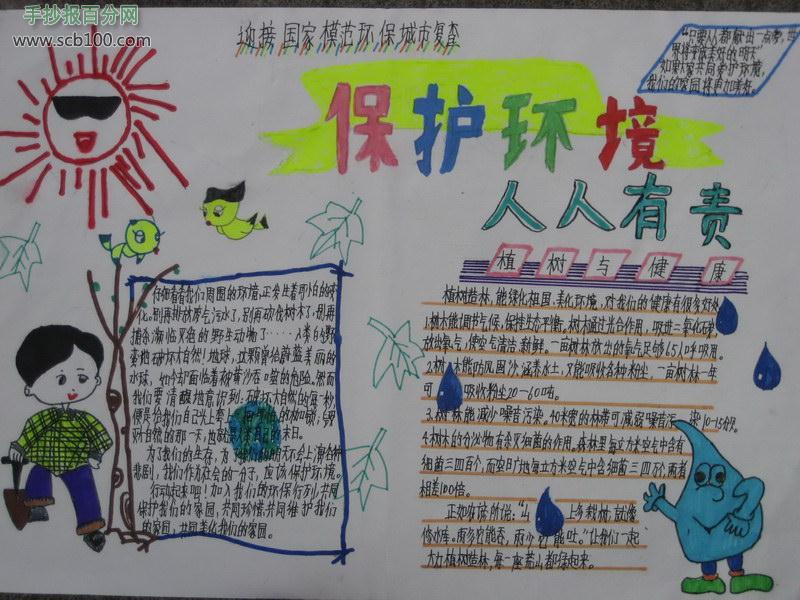 手抄报百分网
www.scb100.com
迎接国家模范环保城市复查
“只要人人都献出一点爱,世
界将变成美好的明天”
如果大家共同爱护环境,
我们的家园将更加美好。
保护环境
人人有责
植树与健康
仔细看看我们周围的环境,正发生着可怕的变
化。别再排放废气污水了,别再砍伐树木了,别再
捕杀濒临灭绝的野生动物了……人类的野
蛮地破坏大自然!地球,这颗蔚蓝美丽的
水球,如今却面临着被黄沙吞噬的危险。然而
我们要清醒地意识到:破坏大自然的每一秒,
便是给我们自己头上套上
好自然的那一天,也就是
末日。
为了我们的生存,为了我们的明天不会上演各种
悲剧,我们作为社会的一分子,应该保护环境。
行动起来吧!加入我们的环保行列,共同
保护我们的家园,共同珍惜共同维护我们
的家园,共同美化我们的家园。
植树造林,能绿化祖国,美化环境,对我们的健康有很多好处
1.树木能调节气候,保持生态平衡。树木通过光合作用,吸进二氧化碳
放出氧气,使空气清洁、新鲜。一亩树林放出的氧气足够65人呼吸用。
2.树木能防风固沙,涵养水土,又能吸收各种粉尘,一亩树林一年
可 吸收粉尘20-60吨。
3.树林能减少噪音污染。40米宽的林带可减弱噪音污染10-15分贝。
4.树木的分泌物有杀灭细菌的作用。森林里每立方米空气中含有
细菌三四百个,而空旷地每立方米空气中含细菌三四万个,两者
相差100倍。
正如农谚所说:“山 上多栽树,就像
修水库。雨多它能吞,雨少它能吐。”让我们一起
大力植树造林,每一座荒山都绿起来。